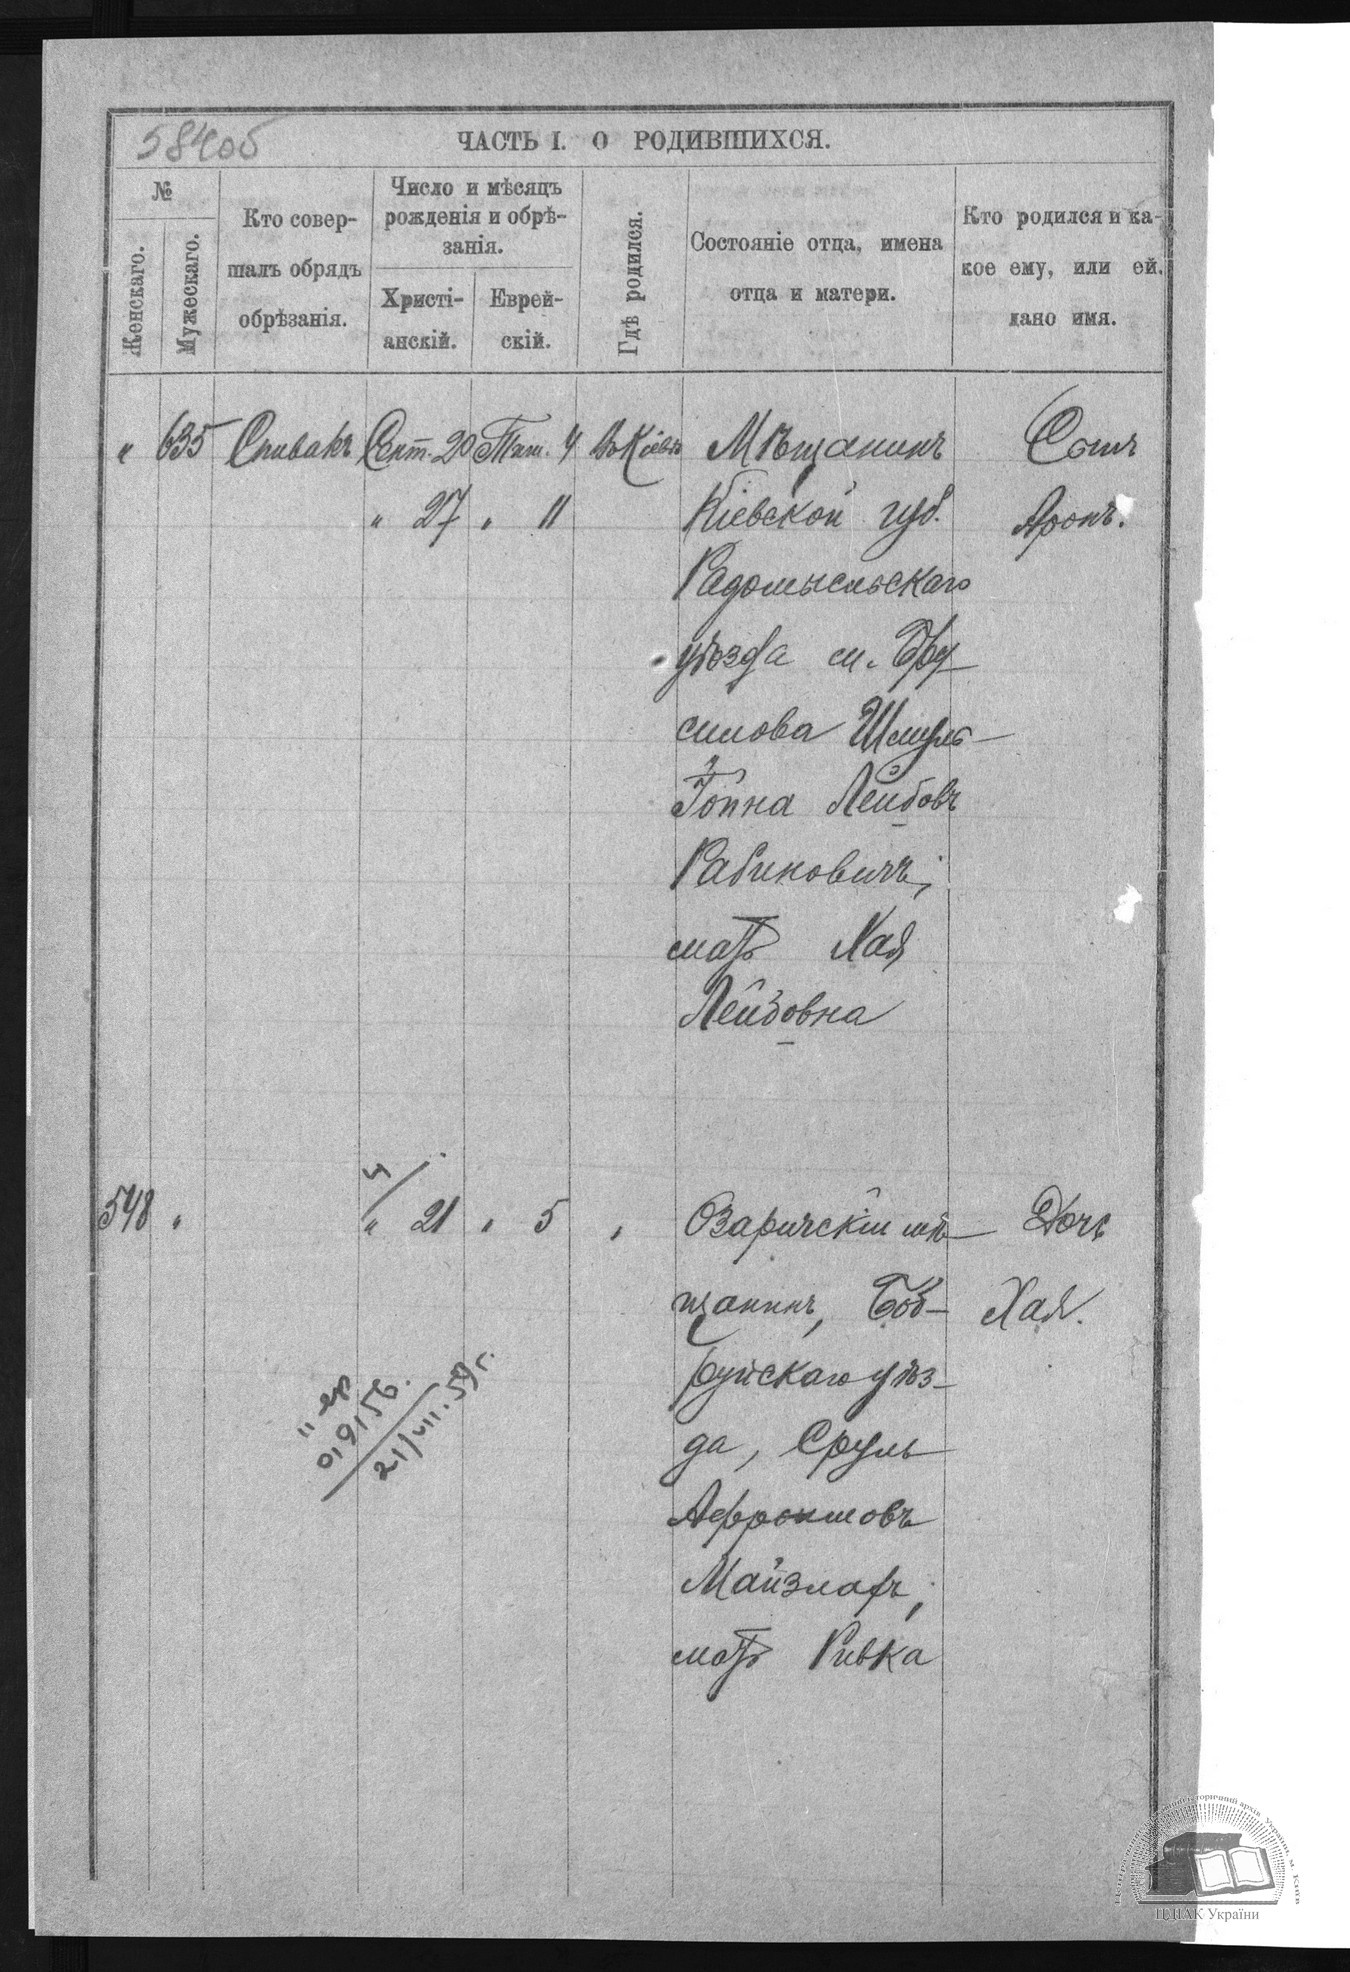 584об
ЧАСТЬ I. О РОДИВШИХСЯ.
№
Женскаго.
Мужескаго.
Кто совер-
шалъ обрядъ
обрѣзанія.
Число и мѣсяцъ
рожденія и обрѣ-
занія.
Христі-
анскій.
Еврей-
скій.
Гдѣ родился.
Состояніе отца, имена
отца и матери.
Кто родился и ка-
кое ему, или ей.
дано имя.
" 635 Спивакъ Сент. 20 Тиш. 4 Въ Кіевѣ Мѣщанинъ Сынъ
" 27 " 11 Кіевской губ. Аронъ.
Радомысльскаго
уѣзда м. Бру-
силова Шмуль-
Гойна Лейбовъ
Рабиновичъ;
мать Хая
Лейзовна
548 " " 21 " 5 " Озаричскій мѣ- Дочь
щанинъ, Боб- Хая.
руйскаго уѣз-
да, Сруль
Афроимовъ
Майзлахъ,
мать Ривка
019156.
21/VII.59 г.
ЦДІАК України